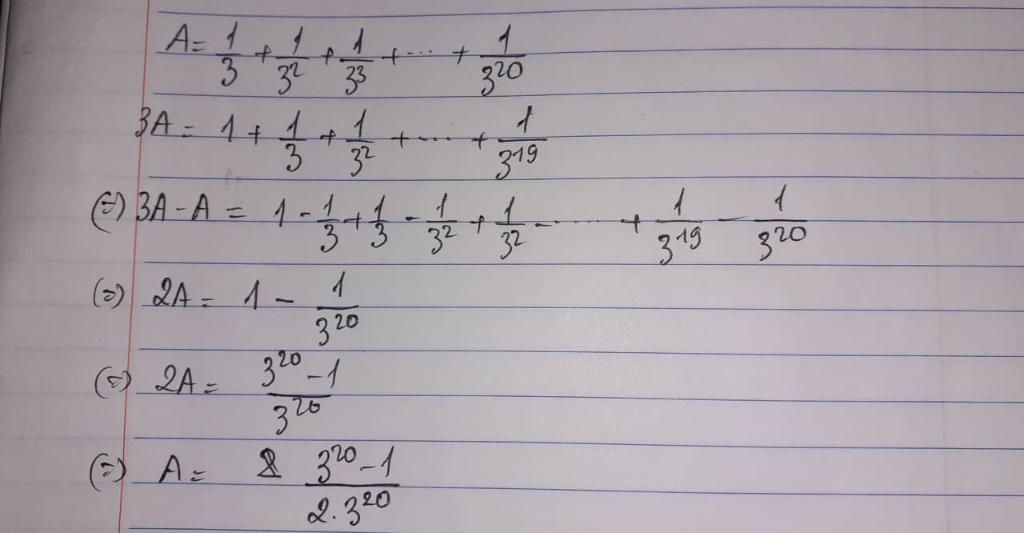 A = 1/3 + 1/3² + 1/3³ + ... + 1/3²⁰
3A = 1 + 1/3 + 1/3² + ... + 1/3¹⁹
(=) 3A - A = 1 - 1/3 + 1/3 - 1/3² + 1/3² - ...... + 1/3¹⁹ - 1/3²⁰
(=) 2A = 1 - 1/3²⁰
(=) 2A = (3²⁰ - 1)/3²⁰
(=) A = (3²⁰ - 1)/(2 . 3²⁰)